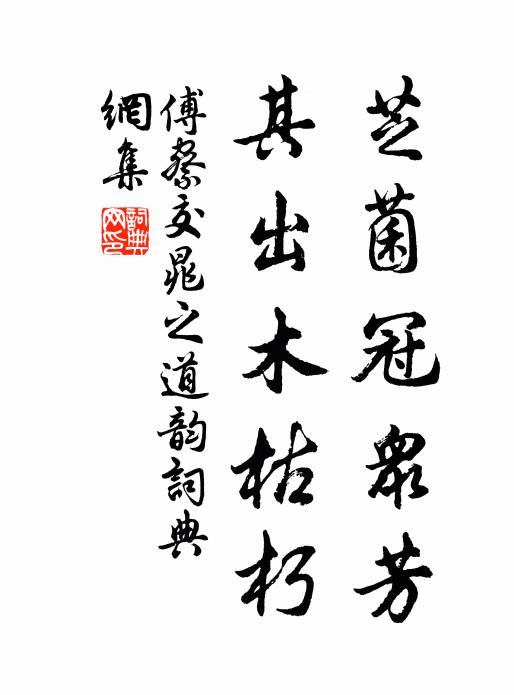 芝菌冠衆芳
其出木枯朽
傅察交晁之道韵詞典
網集
詞典網印